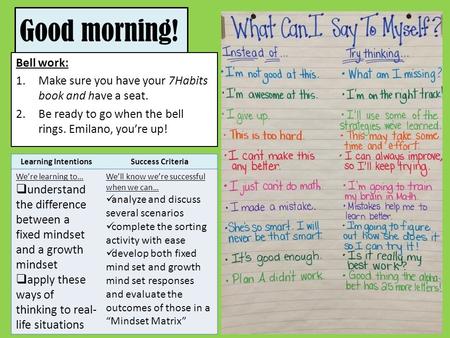 Good morning!
Bell work:
1. Make sure you have your 7Habits
book and have a seat.
2. Be ready to go when the bell
rings. Emilano, you're up!
Learning Intentions
Success Criteria
We're learning to...
understand
the difference
between a
fixed mindset
and a growth
mindset
apply these
ways of
thinking to real-
life situations
We'll know we're successful
when we can...
analyze and discuss
several scenarios
complete the sorting
activity with ease
develop both fixed
mind set and growth
mind set responses
and evaluate the
outcomes of those in a
"Mindset Matrix"
What Can I Say To Myself?
Instead of...
Try thinking...
• I'm not good at this.
• What am I missing?
• I'm awesome at this.
• I'm on the right track!
• I give up.
• I'll use some of the
strategies we've learned.
• This is too hard.
• This may take some
time and effort.
• I can't make this
any better.
• I can always improve,
so I'll keep trying.
• I just can't do math.
• I'm going to train
my brain in Math.
• I made a mistake.
• Mistakes help me to
learn better.
• She's so smart. I will
never be that smart.
• I'm going to figure
out how she does it
so I can try it!
• It's good enough.
• Is it really my
best work?
• Plan A didn't work.
• Good thing the alpha-
bet has 25 more letters!